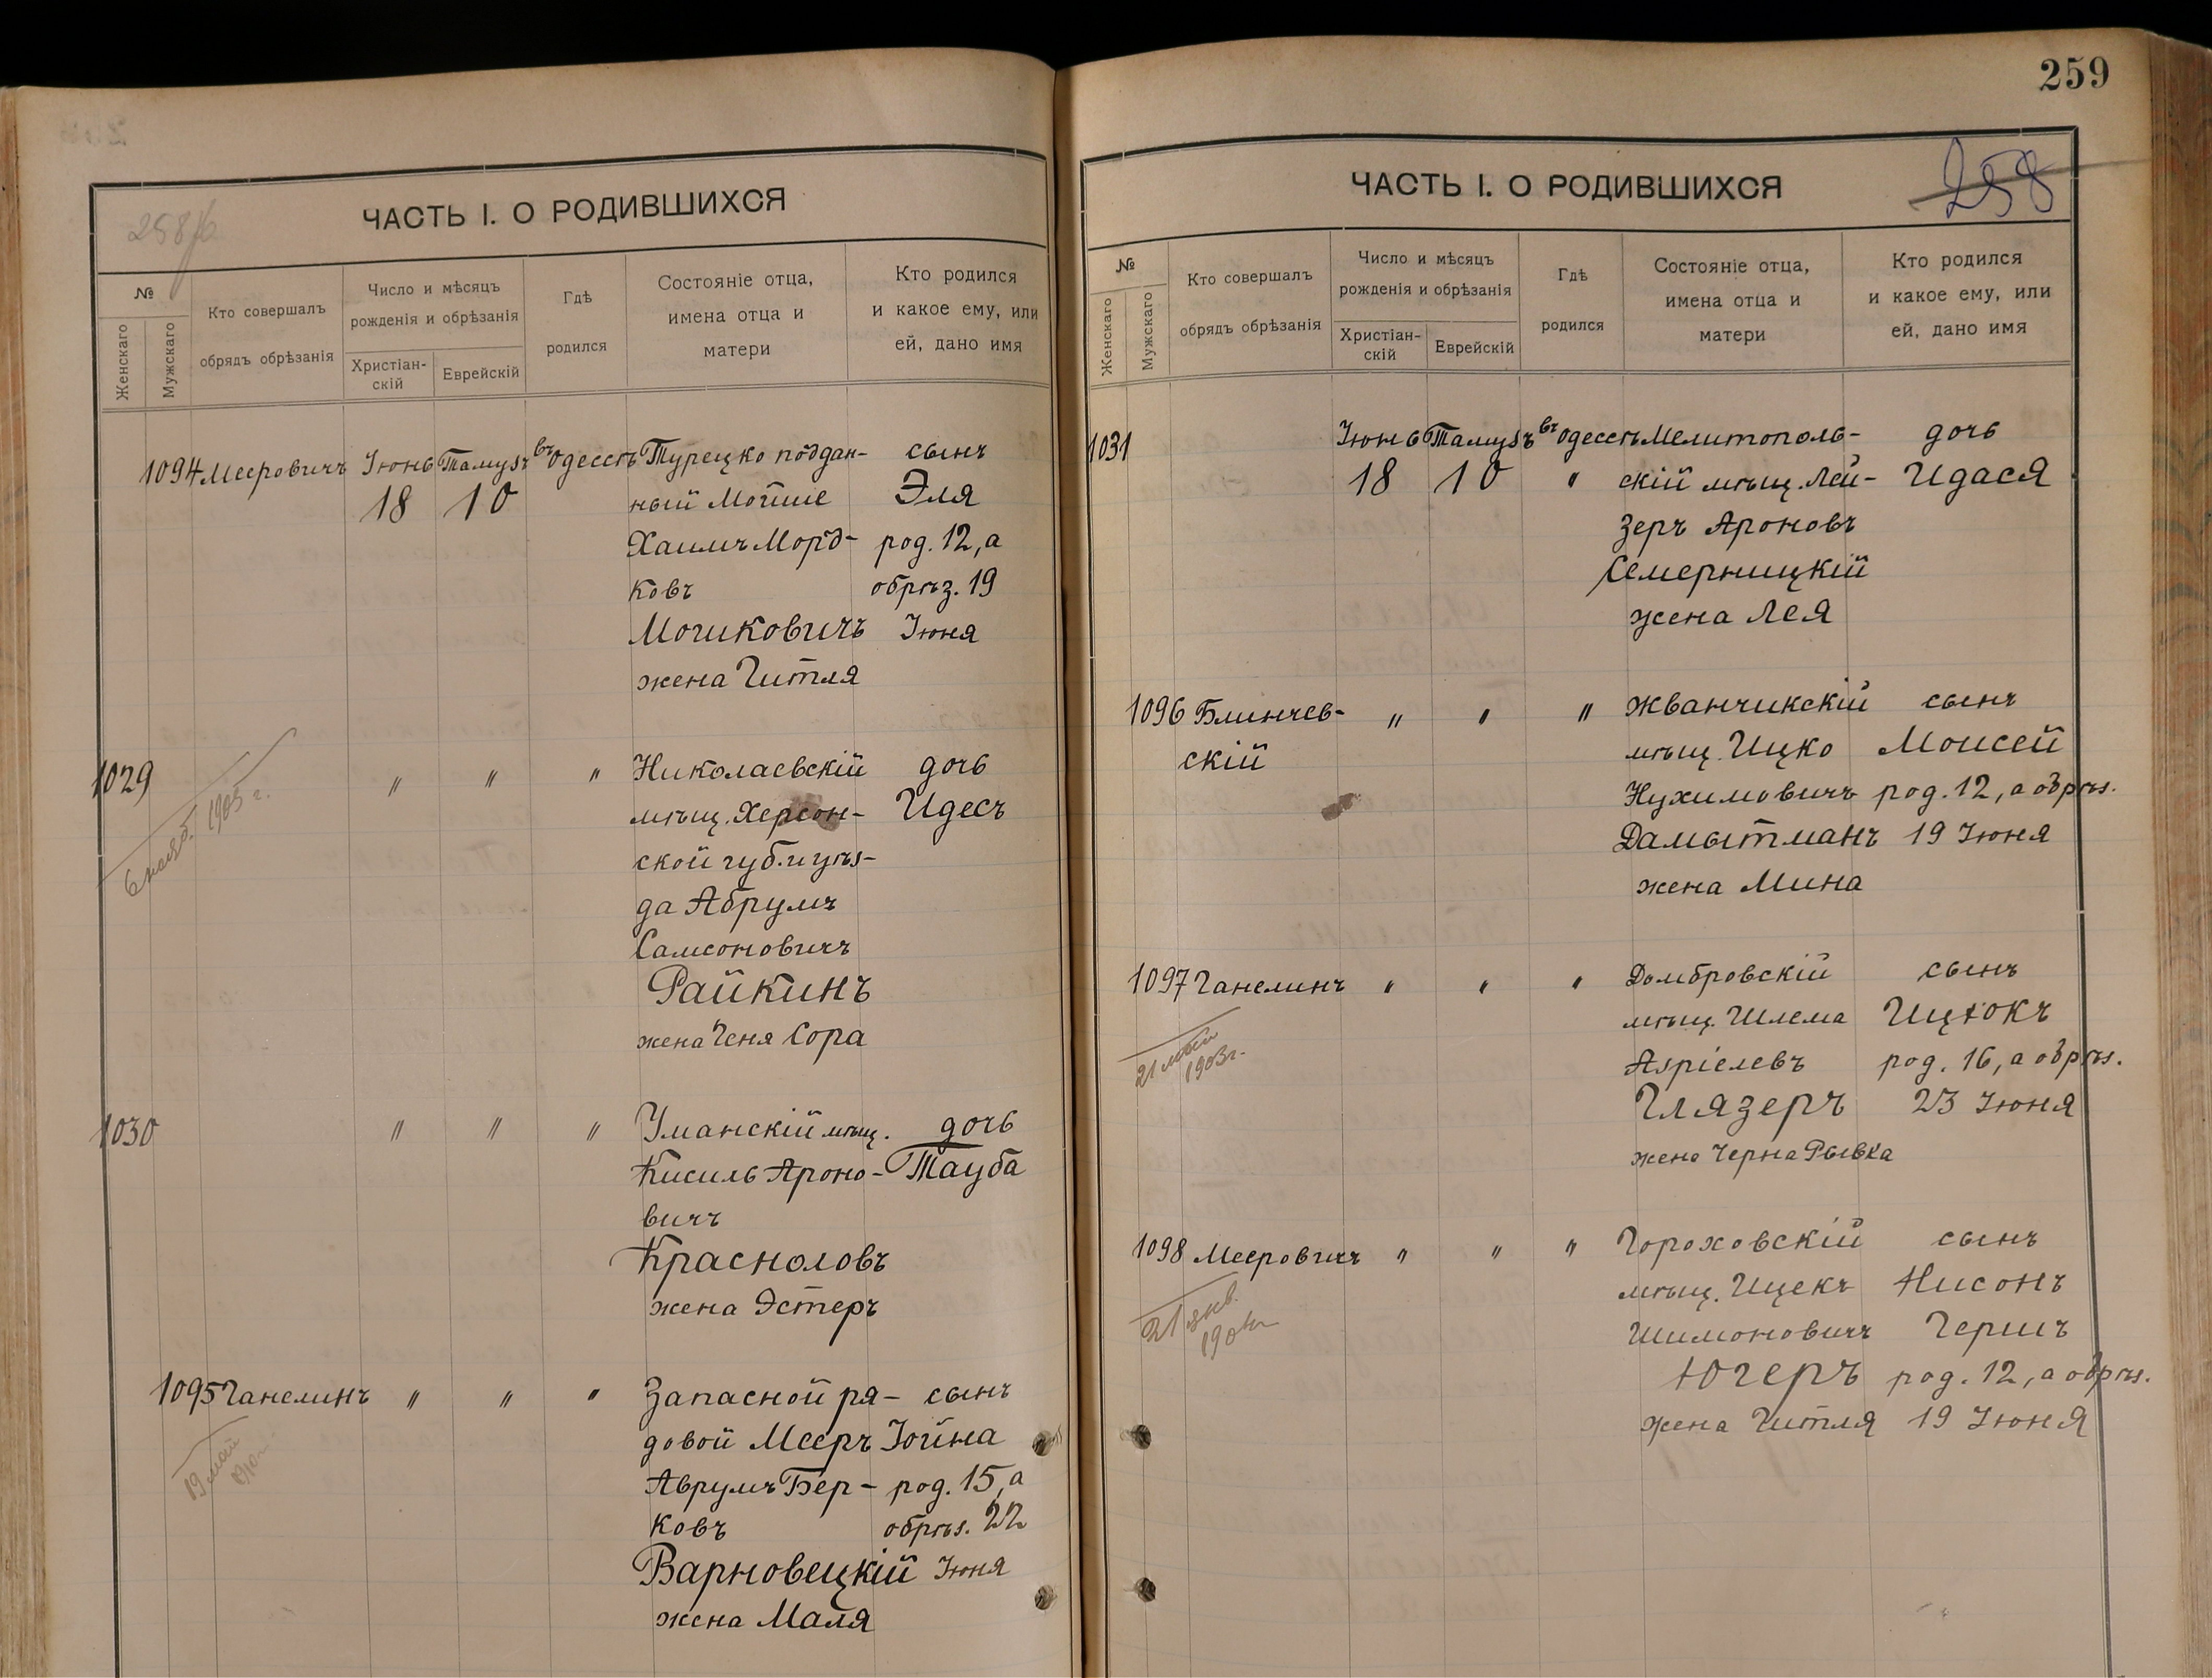 259
ЧАСТЬ I. О РОДИВШИХСЯ
№
Женскаго
Мужскаго
Кто совершалъ
обрядъ обрѣзанія
Число и мѣсяцъ
рожденія и обрѣзанія
Христіан-
скій
Еврейскій
Гдѣ
родился
Состояніе отца,
имена отца и
матери
Кто родился
и какое ему, или
ей, дано имя
1094 Мееровичъ Іюнь Тамузъ въ Одессѣ Турецко поддан- сынъ
18 10 ный Мойше Эля
Хаимъ Морд- род. 12, а
ковъ обрѣз. 19
Мошковичъ Іюня
жена Гитля
1029 〃 〃 〃 Николаевскій дочь
мѣщ. Херсон- Идесъ
6 нояб. 1905 г.
ской губ. и уѣз-
да Абрумъ
Самсоновичъ
Райкинъ
жена Геня Сора
1030 〃 〃 〃 Уманскій мѣщ. дочь
Кисиль Ароно- Тауба
вичъ
Краснoловъ
жена Эстеръ
1095 Ганелинъ 〃 〃 〃 Запасной ря- сынъ
19 май
довой Мееръ Іойна
Аврумъ Бер- род. 15, а
ковъ обрѣз. 22
Варновецкій Іюня
жена Маля
ЧАСТЬ I. О РОДИВШИХСЯ
258
№
Женскаго
Мужскаго
Кто совершалъ
обрядъ обрѣзанія
Число и мѣсяцъ
рожденія и обрѣзанія
Христіан-
скій
Еврейскій
Гдѣ
родился
Состояніе отца,
имена отца и
матери
Кто родился
и какое ему, или
ей, дано имя
1031 Іюнь Тамузъ въ Одессѣ Мелитополь- дочь
18 10 〃 скій мѣщ. Лей- Идася
зеръ Ароновъ
Семерницкій
жена Лея
1096 Блинчев- 〃 〃 〃 Жванчикскій сынъ
скій мѣщ. Ицко Моисей
Нухимовичъ род. 12, а обрѣз.
Дамытманъ 19 Іюня
жена Мина
1097 Ганелинъ 〃 〃 〃 Домбровскій сынъ
мѣщ. Шлема Ицхокъ
21 май
1903 г.
Азріелевъ род. 16, а обрѣз.
Глязеръ 23 Іюня
жена Черна Рывка
1098 Мееровичъ 〃 〃 〃 Гороховскій сынъ
мѣщ. Ицекъ Нисонъ
21 янв.
Шимоновичъ Гершъ
Югеръ род. 12, а обрѣз.
жена Гитля 19 Іюня